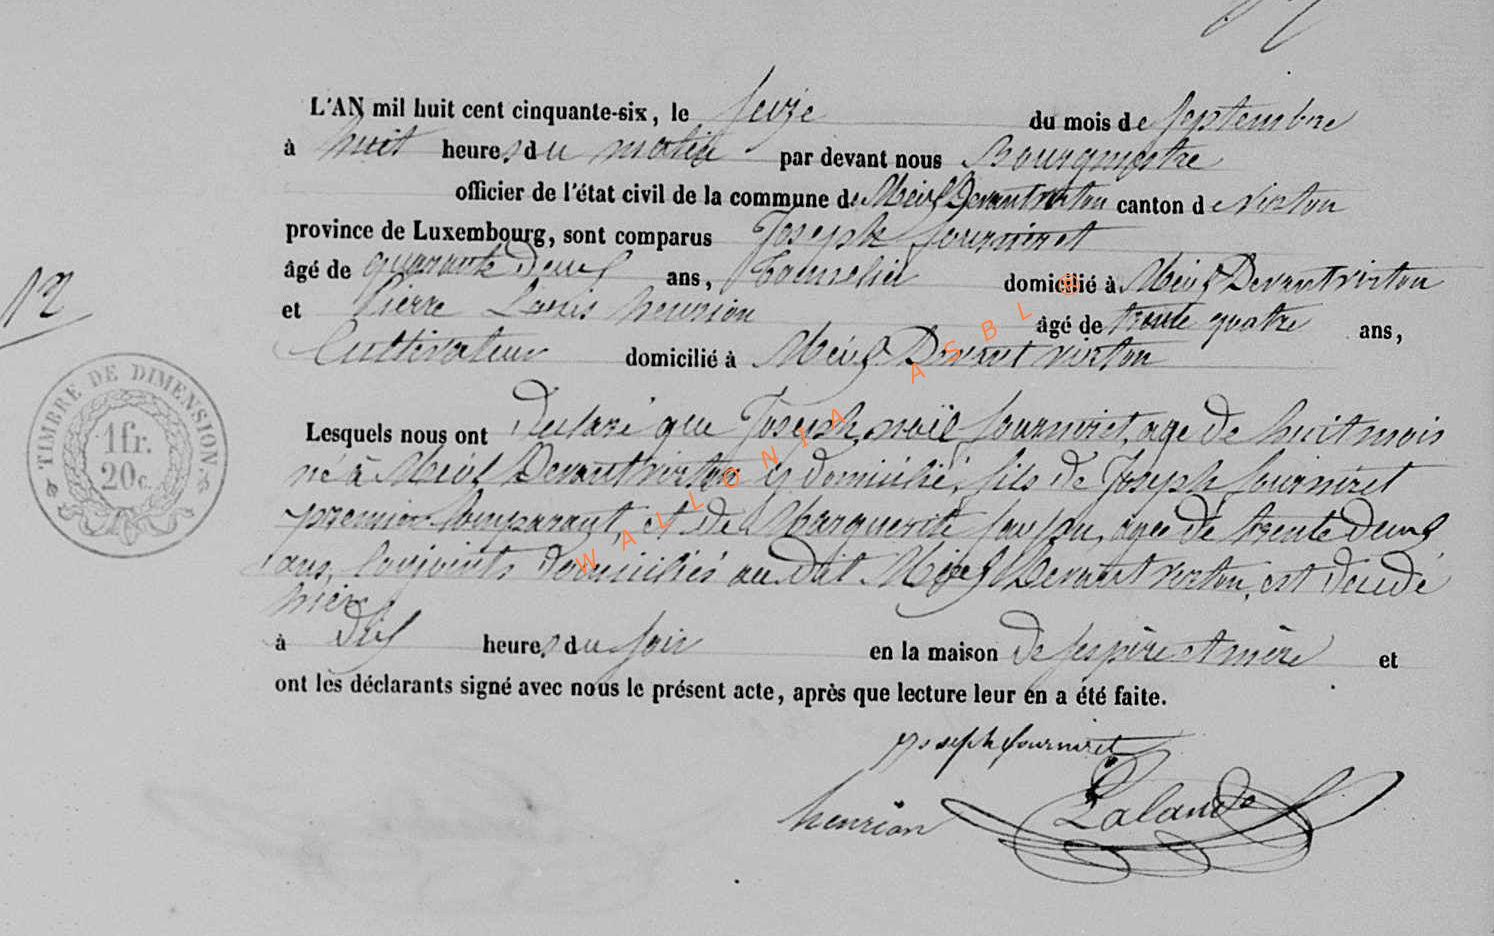 L'AN mil huit cent cinquante-six, le seize du mois de septembre
à huit heures du matin par devant nous Bourgmestre
officier de l'état civil de la commune de Meix Devant virton canton de virton
province de Luxembourg, sont comparus Joseph fourniret
âgé de quarante deux ans, domicilié à Meix Devant virton
et Pierre Louis henrion âgé de trente quatre ans,
Cultivateur domicilié à Meix Devant virton
Lesquels nous ont Declaré que Joseph, noël fourniret, age de huit mois
né à Meix Devant virton y domicilié, fils de Joseph fourniret
premier Comparant, et de Marguerite agee de trente deux
ans, Conjoints domiciliés au dit Meix Devant virton, est décédé
hier
à dix heures du soir en la maison de ses père et mère et
ont les déclarants signé avec nous le présent acte, après que lecture leur en a été faite.
Joseph fourniret
henrion Lalande
12
TIMBRE DE DIMENSION.
1fr.
20c.
WALLONIA ASBL ®